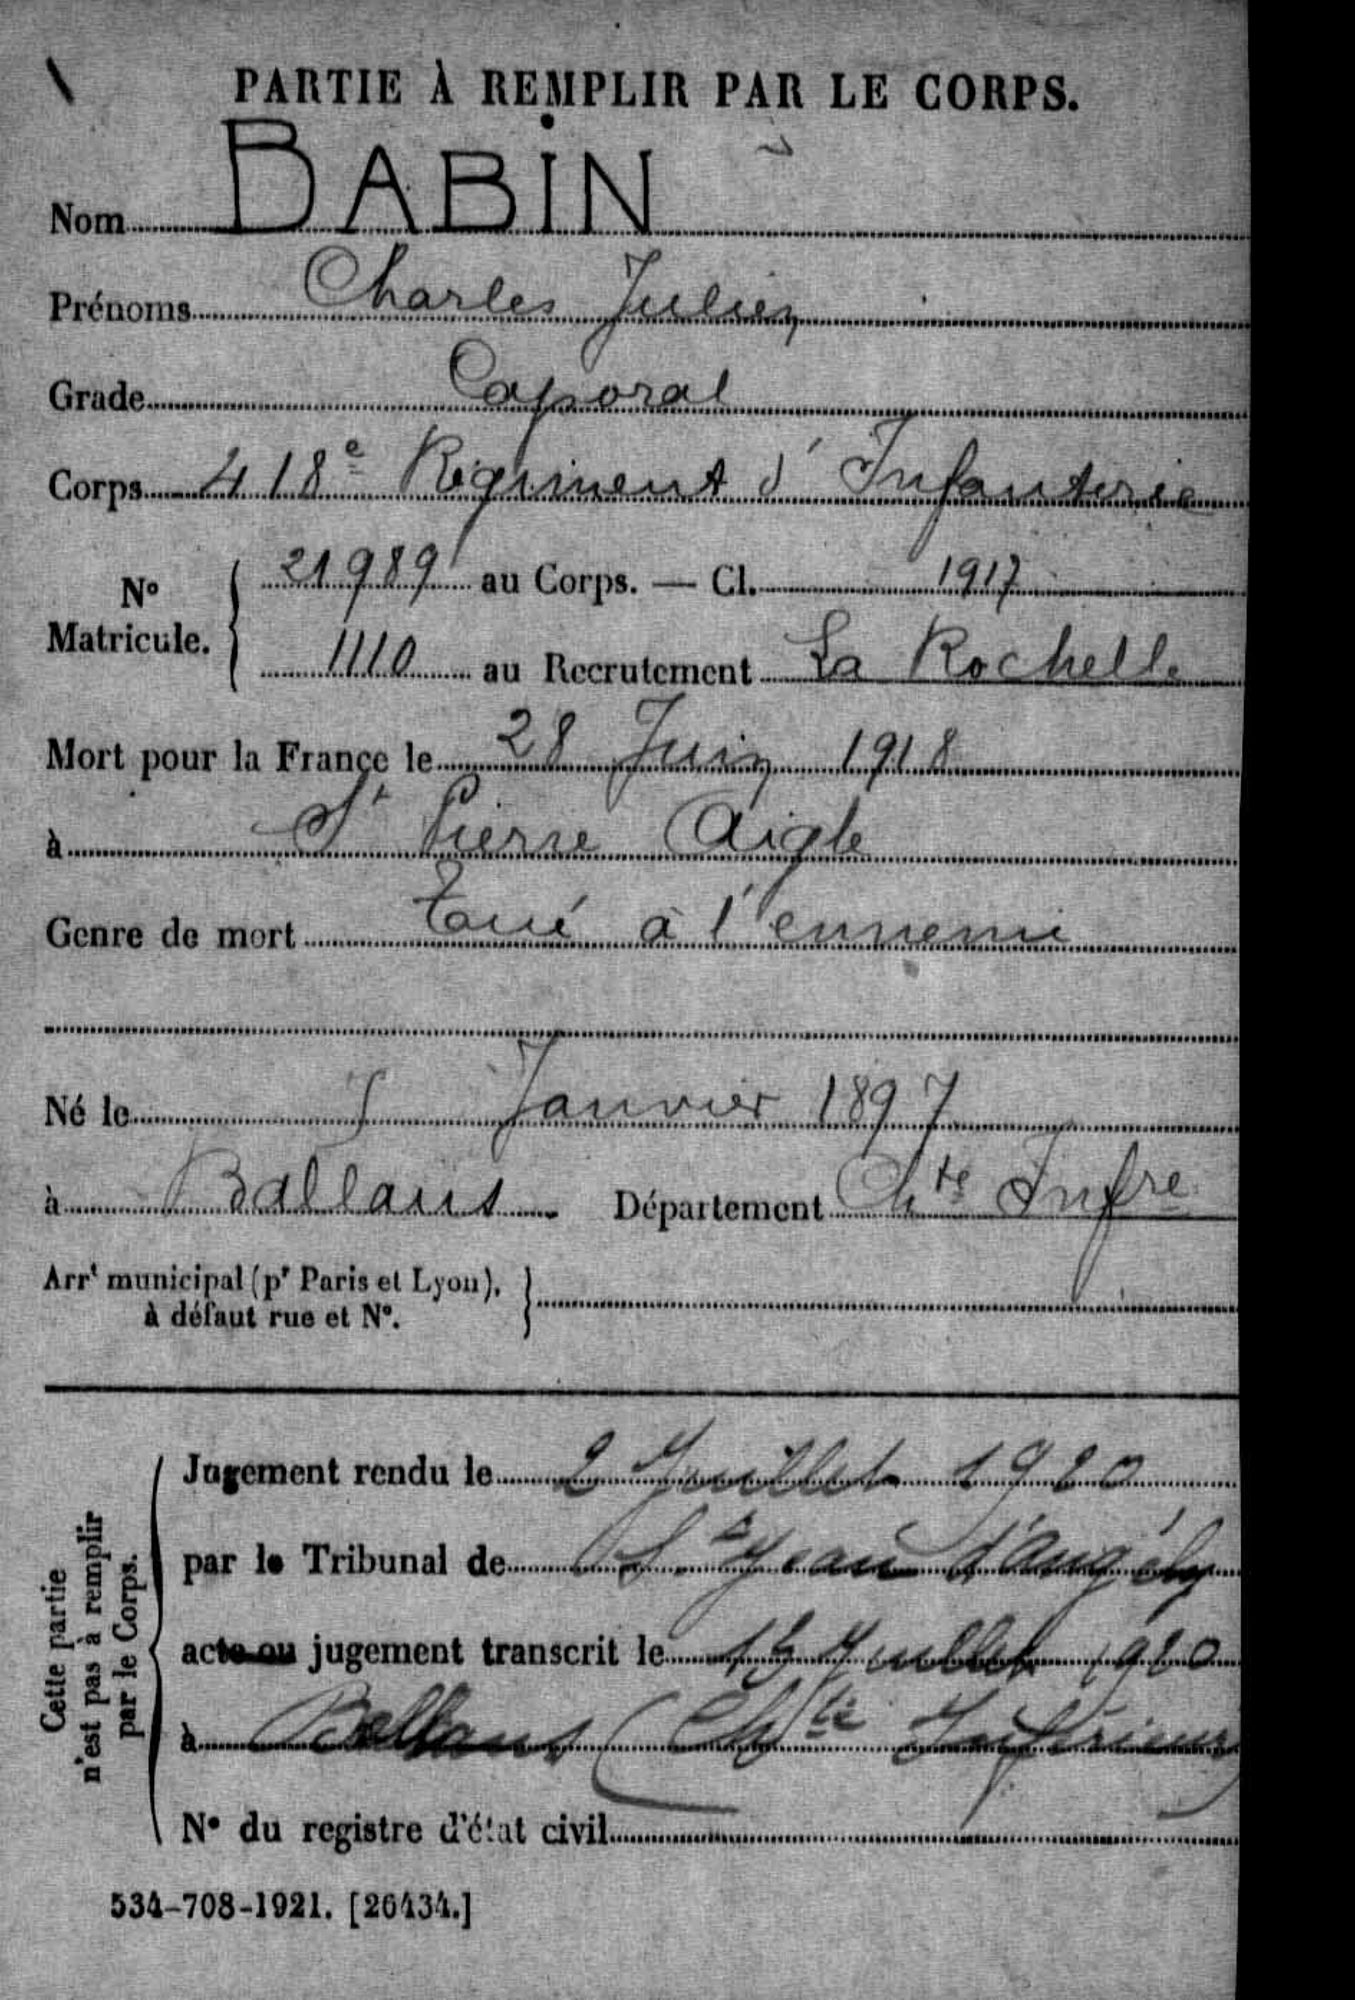 PARTIE À REMPLIR PAR LE CORPS.
Nom BABIN
Prénoms Charles Julien
Grade Caporal
Corps 418e Régiment d'Infanterie
No Matricule. { 21989 au Corps. — Cl. 1917
1110 au Recrutement La Rochelle
Mort pour la France le 28 Juin 1918
à St Pierre Aigle
Genre de mort Tué à l'ennemi
Né le Janvier 1897
à Ballans Département Chte Infre
Arrt municipal (pr Paris et Lyon), }
à défaut rue et No.
Cette partie
n'est pas à remplir
par le Corps.
Jugement rendu le 2 Juillet 1920
par le Tribunal de St Jean d'Angély
acte ou jugement transcrit le Juillet 1920
à Ballans (Chte Inférieure)
No du registre d'état civil
534-708-1921. [26434.]